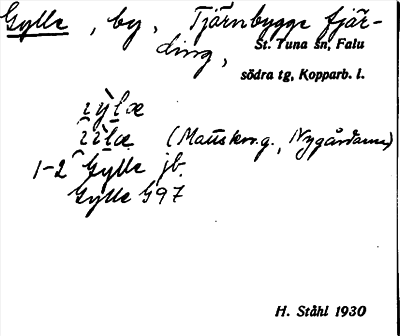 Gylle, by, Tjärnbygge fjär-
ding, St. Tuna sn, Falu
södra tg, Kopparb. l.
(Mattskor.g., Nygårdarna)
1-2 Gylle jb.
Gylle G97
H. Ståhl 1930